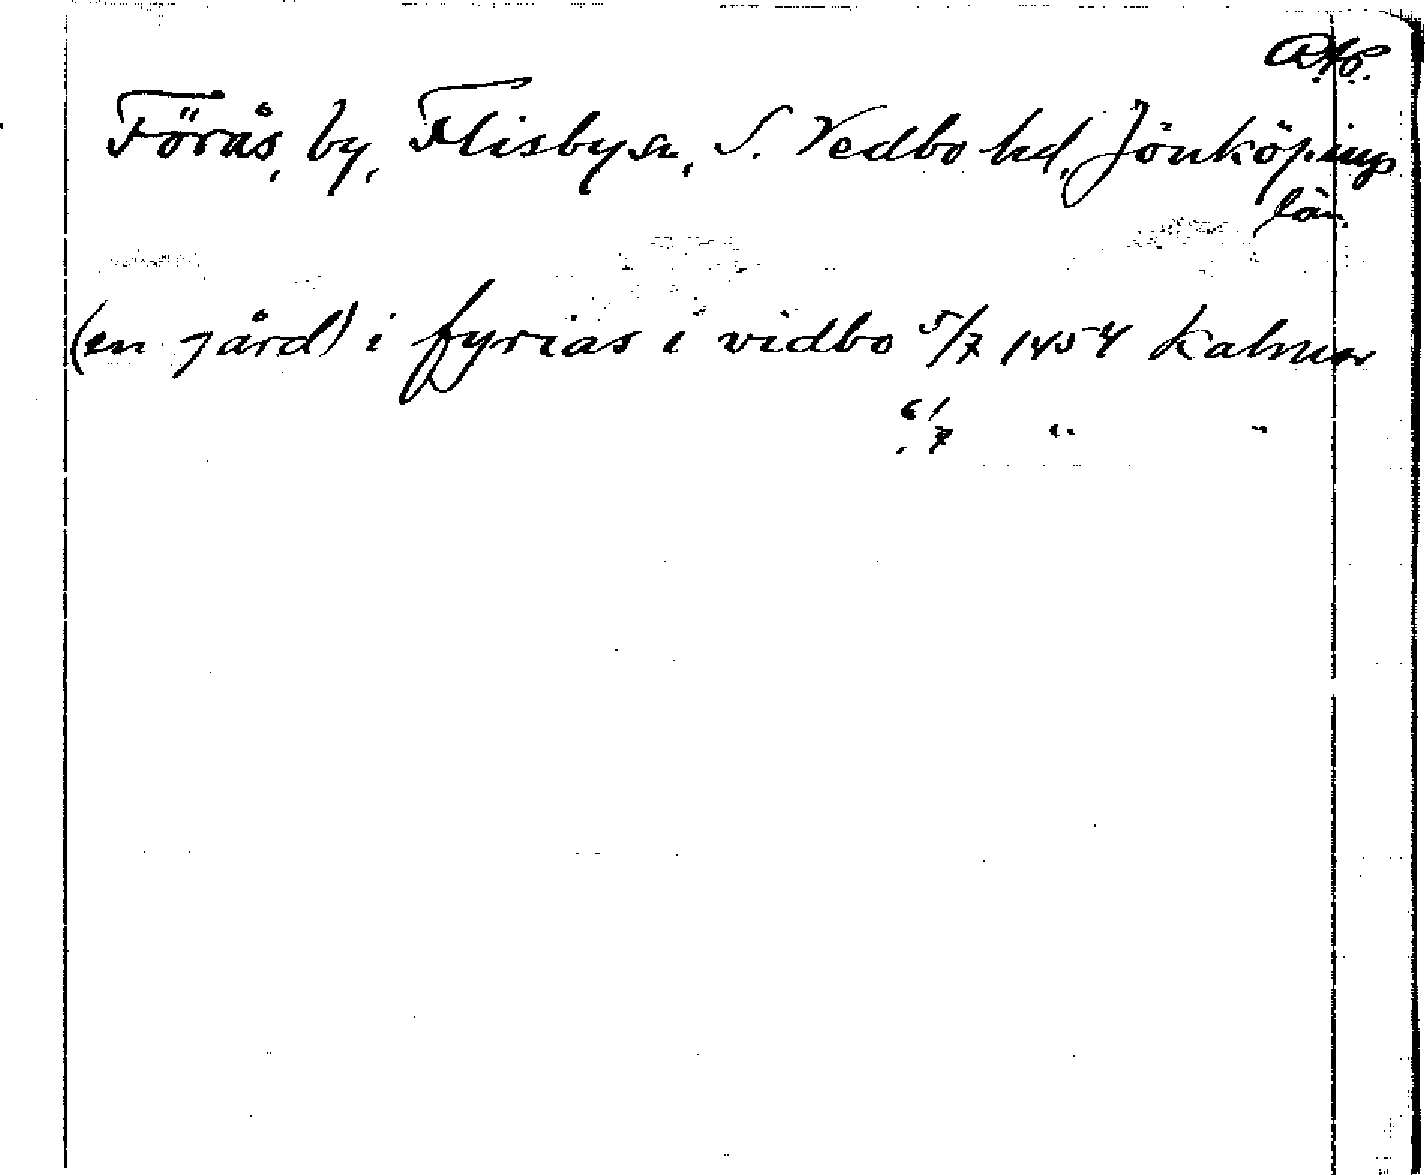 Förås, by, Flisby sn, S. Vedbo hd, Jönköpings
län.
(en gård) i fyrias i vidbo 5/7 1454 Kalmar
6/7 " "